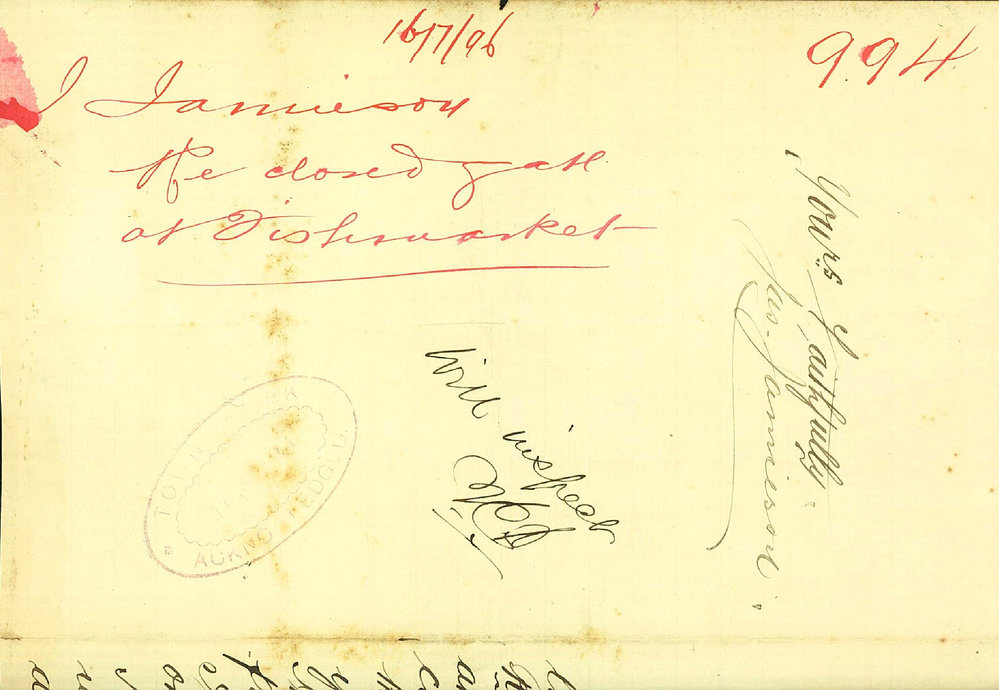 16/7/96
994
J Jamieson
Re closed gate
at Fishmarket
Yours faithfully
Jas. Jamieson.
Will inspect
TOWN CLERK
ACKNOWLEDGED